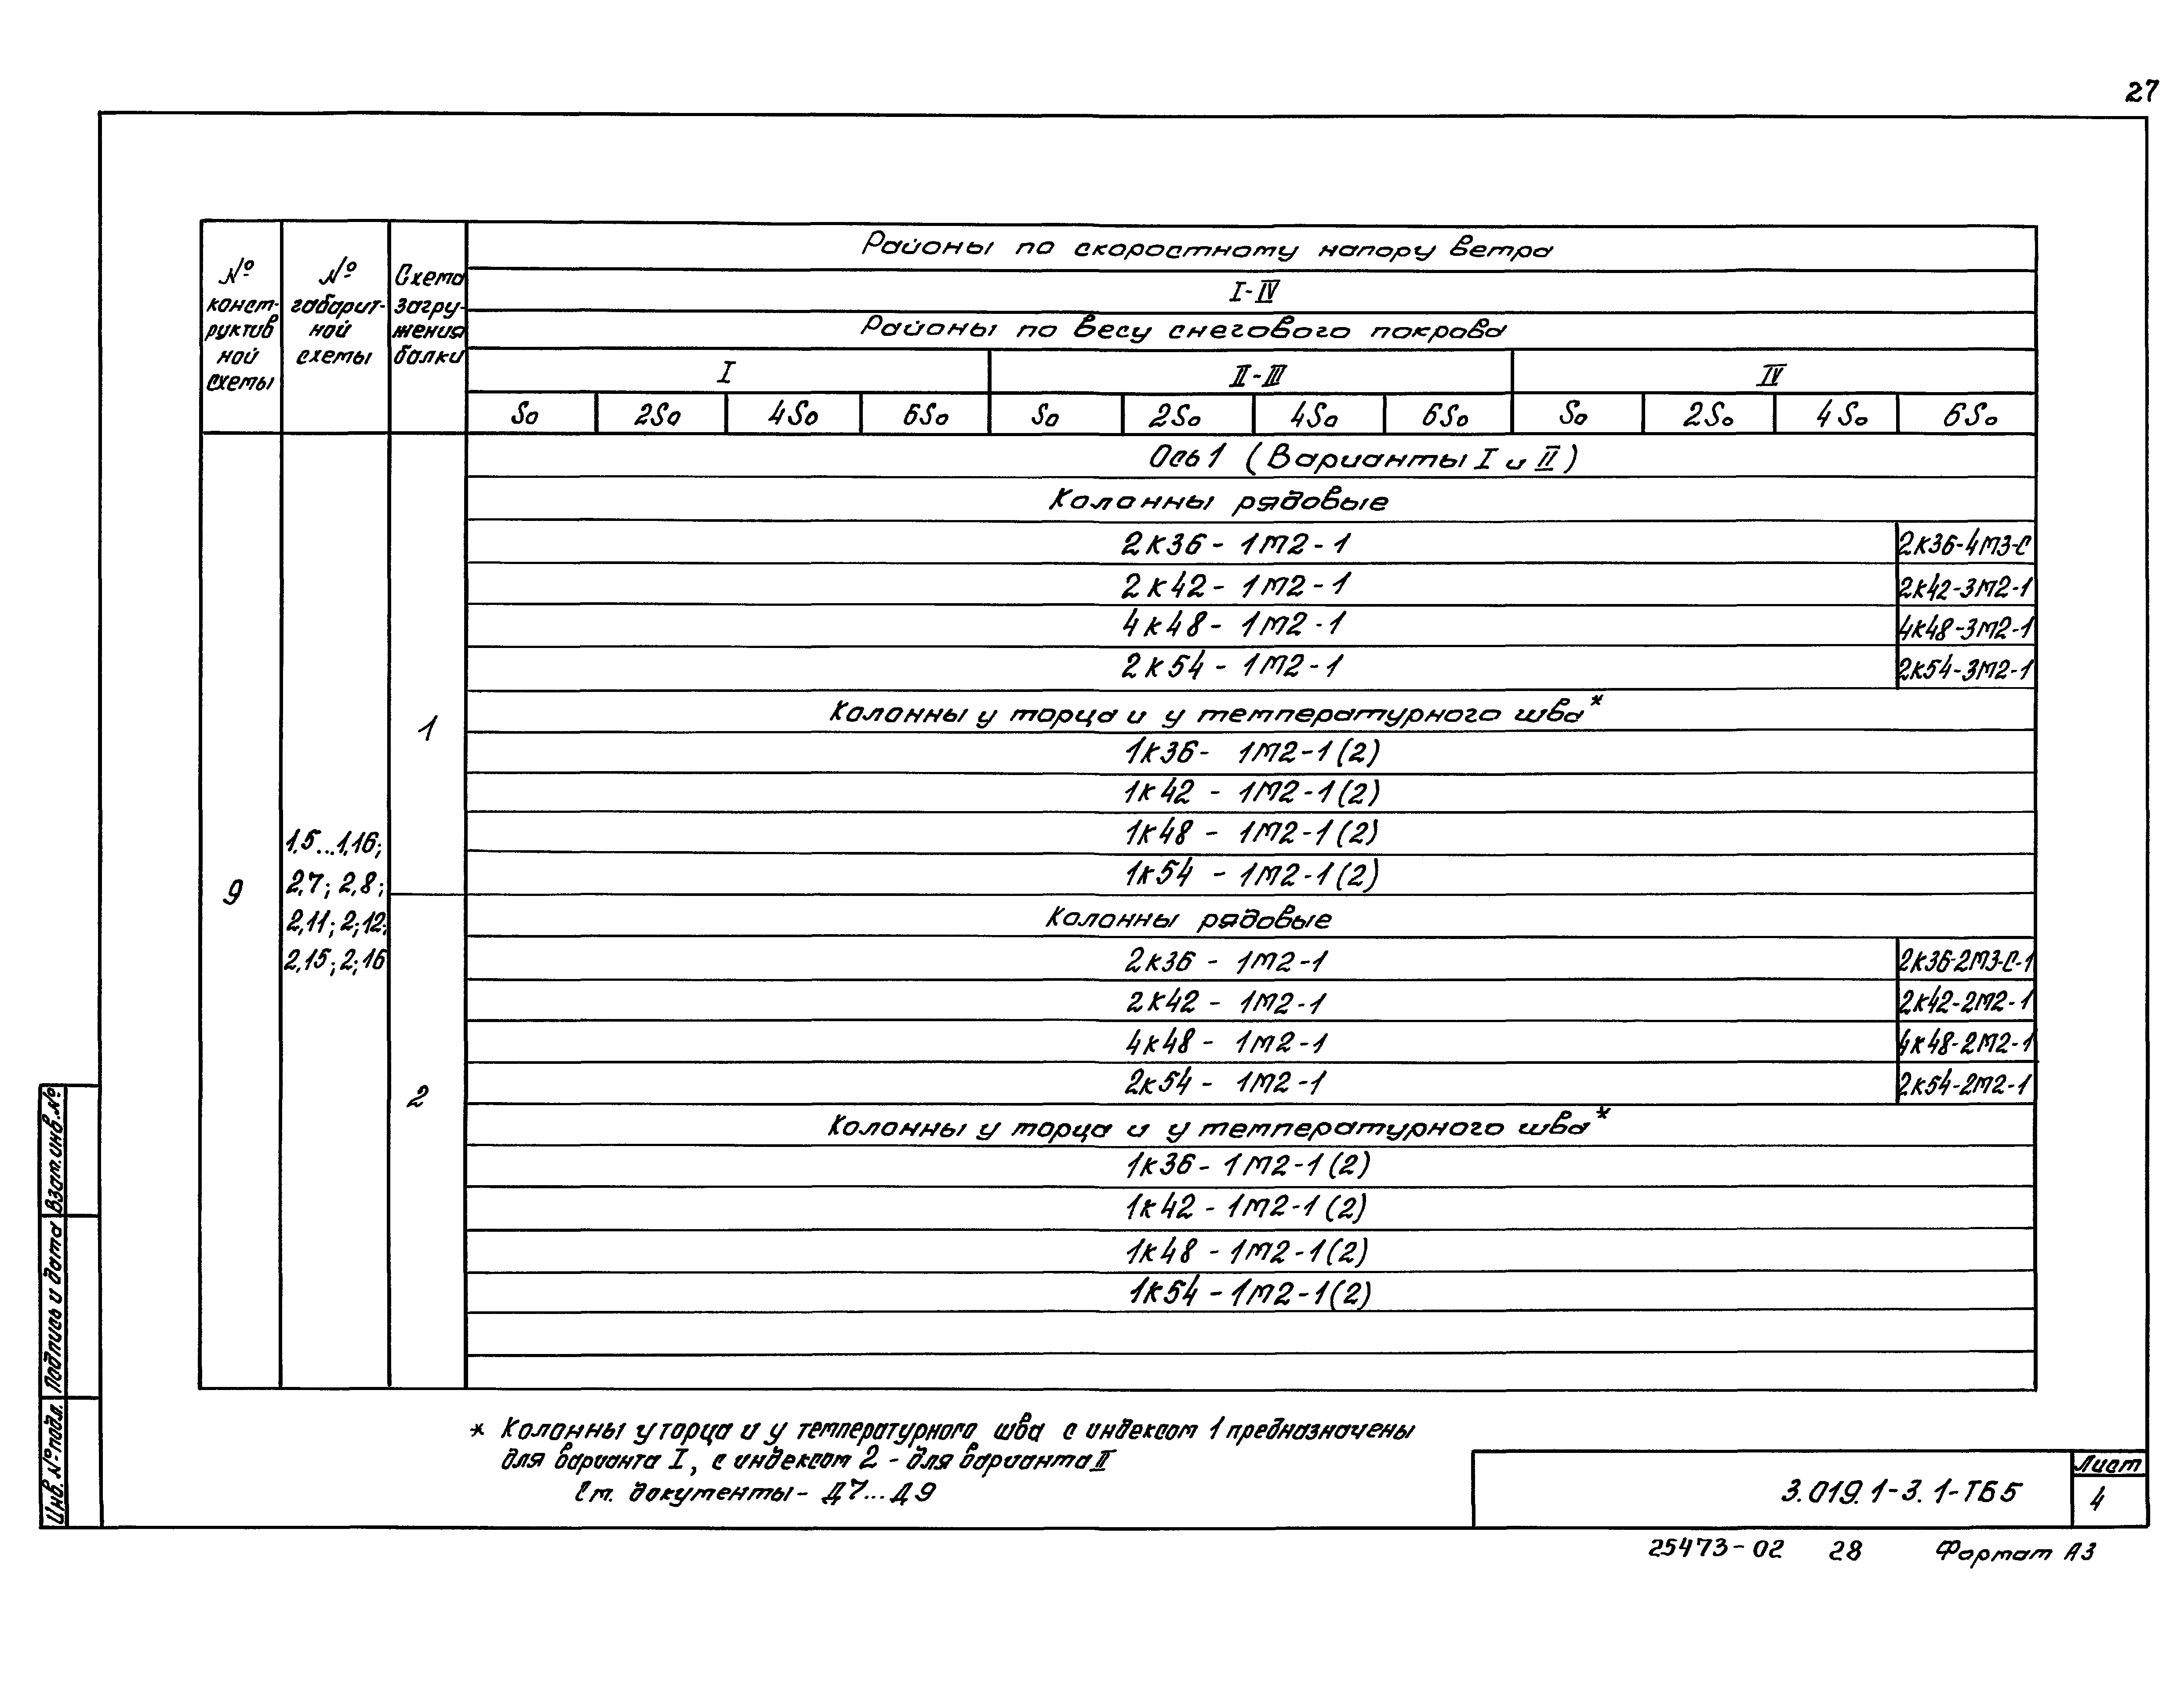 27
№ конст-руктив ной схемы
№ габарит-ной схемы
Схема загру-жения балки
Районы по скоростному напору ветра
I-IV
Районы по весу снегового покрова
I II-III IV
So 2So 4So 6So So 2So 4So 6So So 2So 4So 6So
Ось 1 (Варианты I и II)
Колонны рядовые
2К36-1М2-1 2К36-4М3-С
2К42-1М2-1 2К42-3М2-1
4К48-1М2-1 4К48-3М2-1
2К54-1М2-1 2К54-3М2-1
Колонны у торца и у температурного шва*
1
1К36-1М2-1(2)
1К42-1М2-1(2)
1К48-1М2-1(2)
1К54-1М2-1(2)
9
1.5...1.16;
2,7; 2,8;
2,11; 2;12;
2,15; 2;16
Колонны рядовые
2К36-1М2-1 2К36-2М3-С-1
2К42-1М2-1 2К42-2М2-1
4К48-1М2-1 4К48-2М2-1
2К54-1М2-1 2К54-2М2-1
2
Колонны у торца и у температурного шва*
1К36-1М2-1(2)
1К42-1М2-1(2)
1К48-1М2-1(2)
1К54-1М2-1(2)
* Колонны у торца и у температурного шва с индексом 1 предназначены
для варианта I, с индексом 2 - для варианта II
См. документы - Д7...Д9
Инв. № подл. Подпись и дата Взам.инв.№
3.019.1-3.1-ТБ5
Лист
4
25473-02 28 Формат А3